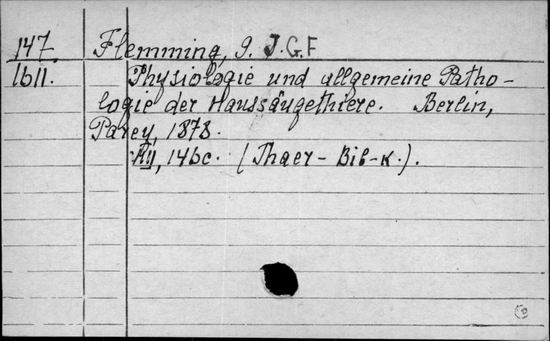 147. Flemming, G. J.G.F
1611. Physiologie und allgemeine Patho-
logie der Haussäugethiere. Berlin,
Parey, 1878.
146c. (Thaer-Bib-K.).